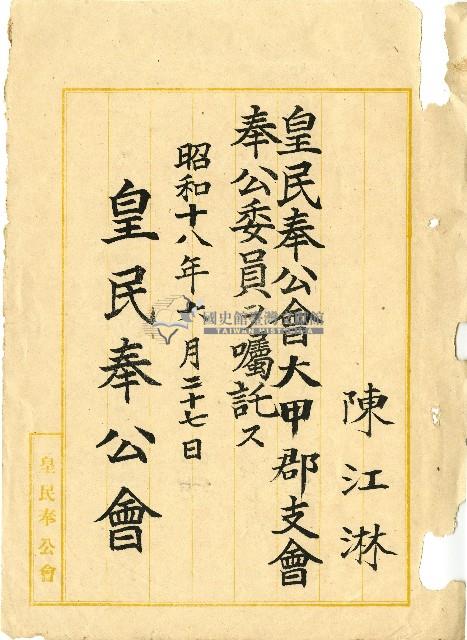 陳江淋
皇民奉公會大甲郡支會
奉公委員ヲ囑託ス
昭和十八年 月二十七日
皇民奉公會
皇民奉公會
國史館臺灣文獻館
TAIWAN HISTORICA